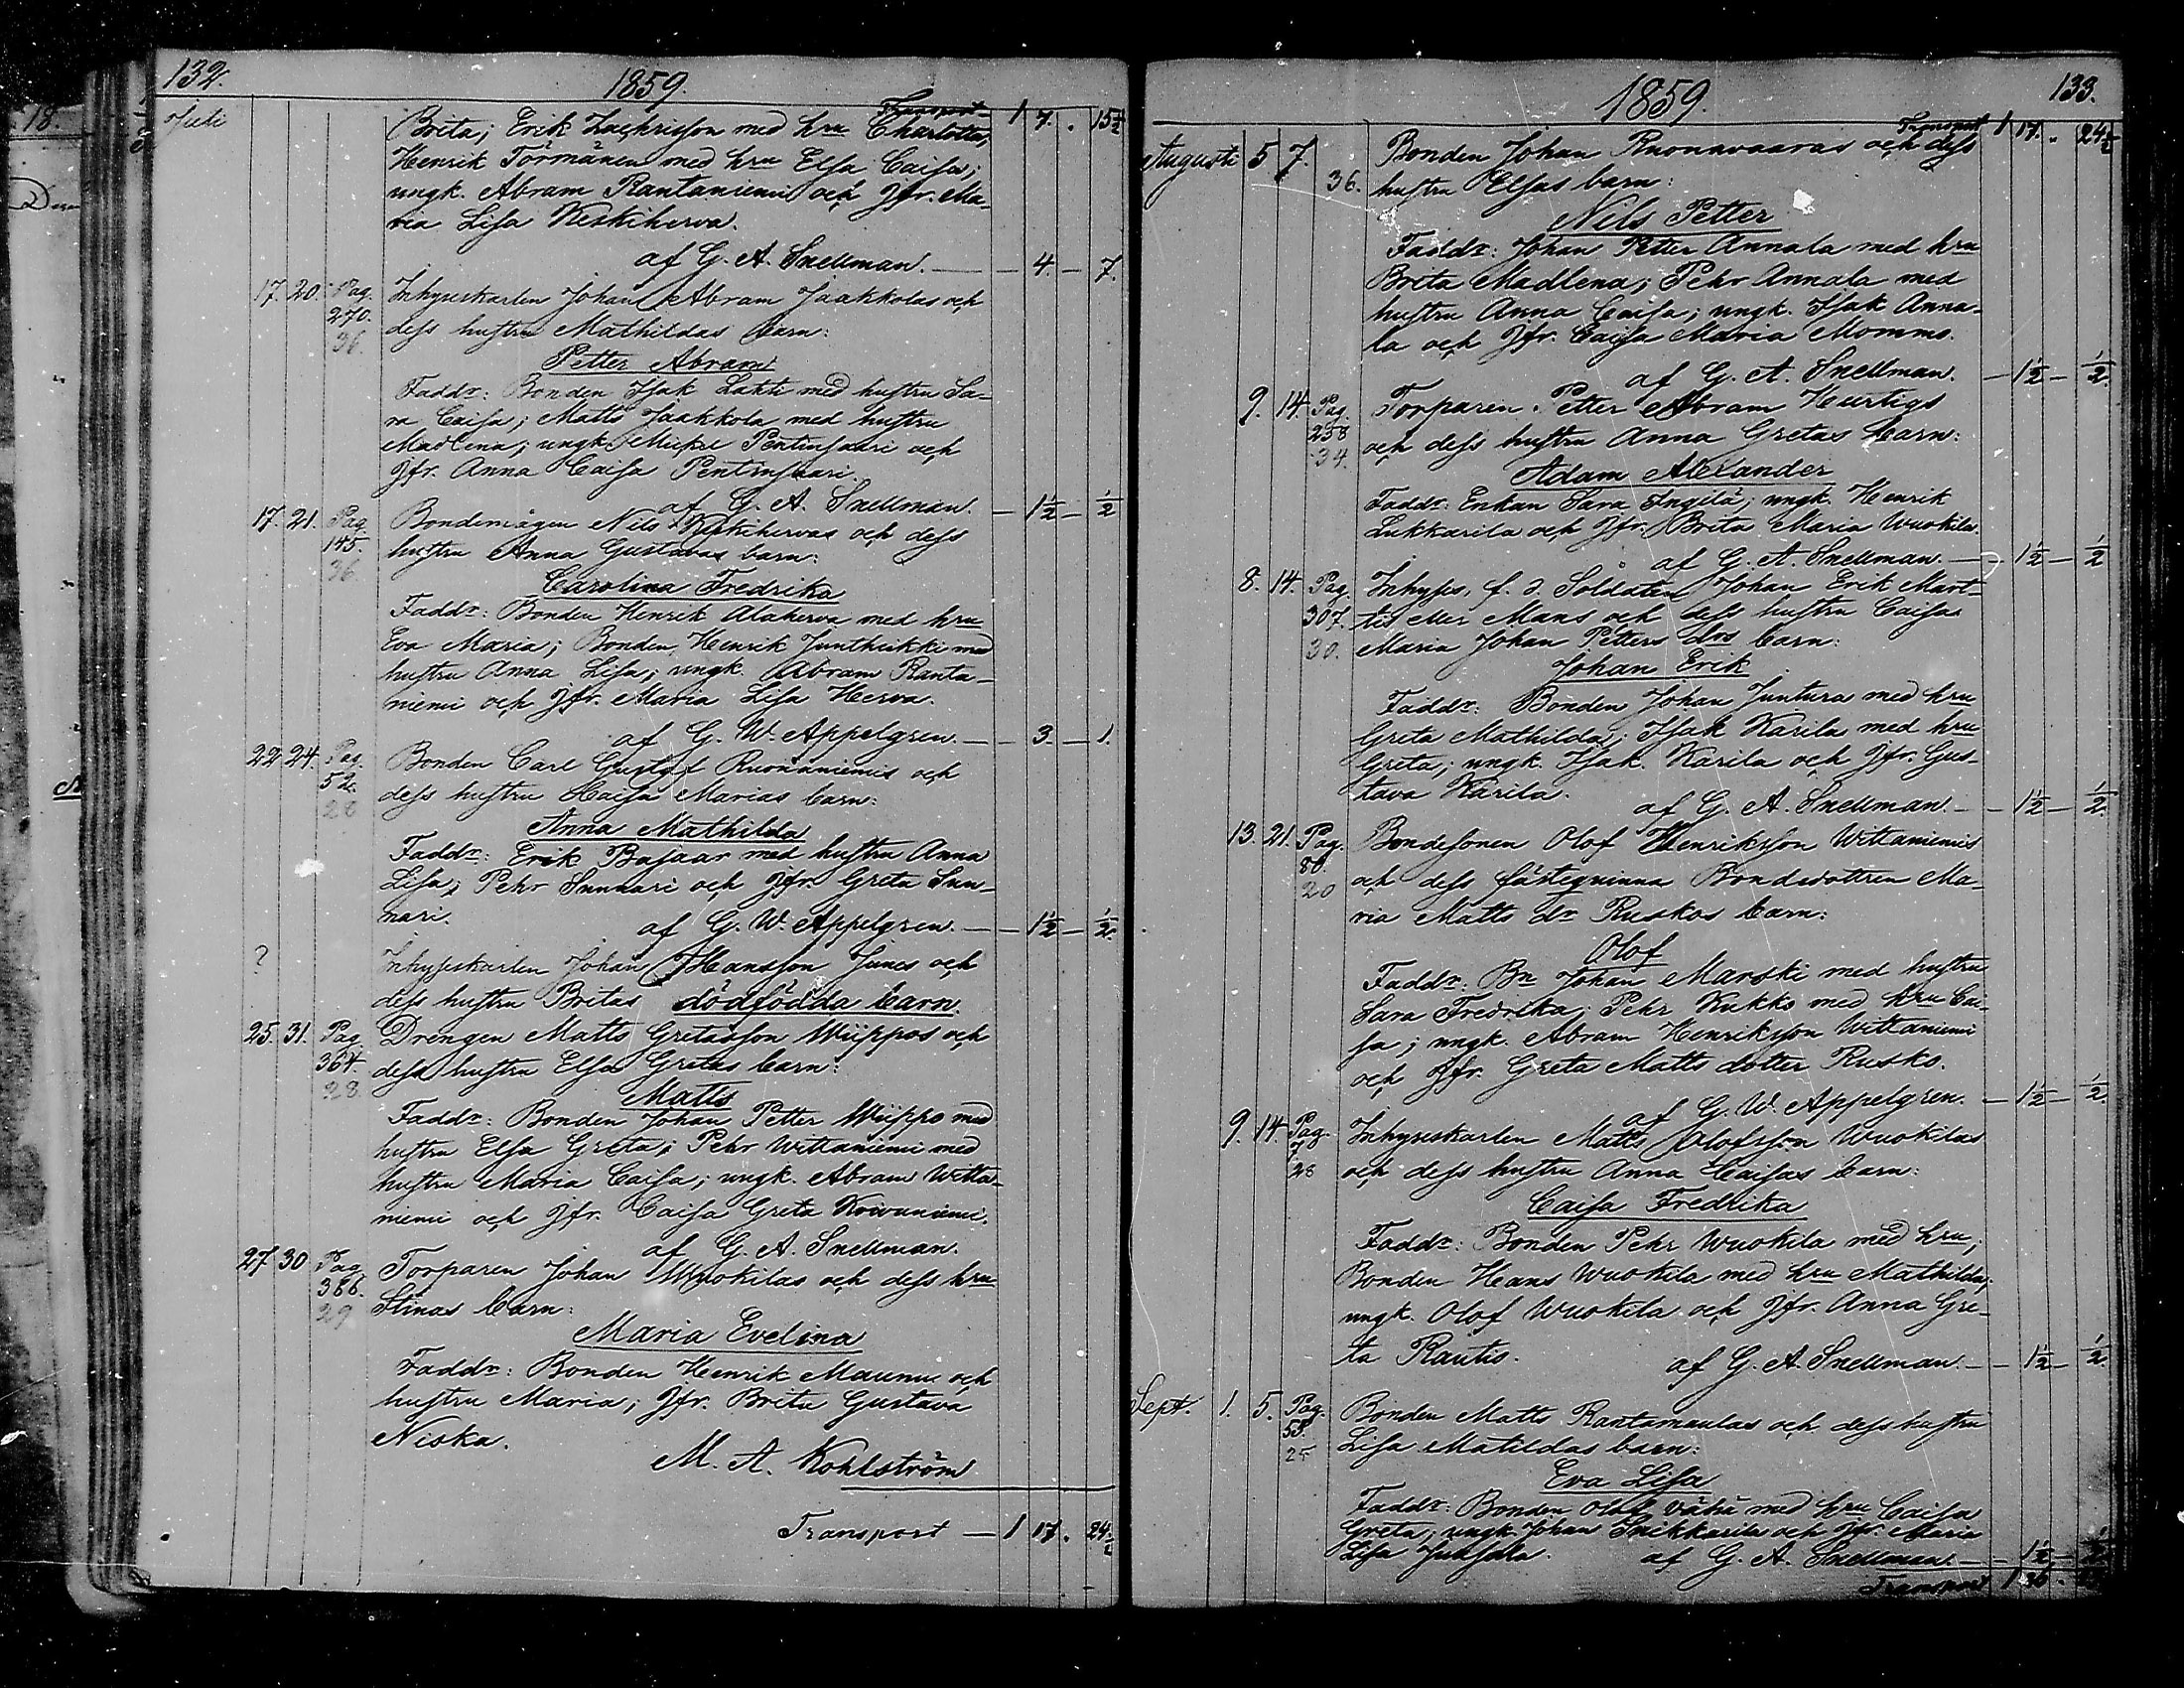 132.
1859.
Transport 1 7. . 15½
Juli
Brita; Erik Zachrisson med hru Charlotta,
Henrik Törmänen med hru Elsa Caisa;
ungk. Abram Rantaniemi och Jfr. Ma-
ria Lisa Keskiherva.
af G. A. Snellman. — 4 — 7.
17. 20. Pag. 270. 36. Inhyseskarlen Johan Abram Jaakkolas och
dess hustru Mathildas barn:
Petter Abram
Faddr: Bonden Isak Lahti med hustru Sa-
ra Caisa; Matts Jaakkola med hustru
Madlena; ungk. Mickel Pentinsaari och
Jfr. Anna Caisa Pentinsaari.
af G. A. Snellman. — 1½ — ½
17. 21. Pag 145. 36. Bondemågen Nils Keskihervas och dess
hustru Anna Gustavas barn:
Carolina Fredrika
Faddr: Bonden Henrik Alaherva med hru
Eva Maria; Bonden Henrik Junthikki med
hustru Anna Lisa; ungk. Abram Ranta-
niemi och Jfr. Maria Lisa Herva.
af G. W. Appelgren. — 3. — 1.
22 24. Pag. 52. 28 Bonden Carl Gustaf Ruonaniemis och
dess hustru Caisa Marias barn:
Anna Mathilda
Faddr: Erik Basaar med hustru Anna
Lisa; Pehr Sunnari och Jfr. Greta Sun-
nari.
af G. W. Appelgren. — 1½ — ½.
? Inhyseskarlen Johan Hansson Junes och
dess hustru Britas dödfödda barn.
25. 31. Pag 364. 28. Drengen Matts Gretasson Wiippos och
dess hustru Elsa Gretas barn:
Matts
Faddr: Bonden Johan Petter Wiippo med
hustru Elsa Greta; Pehr Wittaniemi med
hustru Maria Caisa; ungk. Abram Witta-
niemi och Jfr. Caisa Greta Koivuniemi.
af G. A. Snellman.
27 30 Pag 386. 29 Torparen Johan Wuokilas och dess hru
Stinas barn:
Maria Evelina
Faddr: Bonden Henrik Maunu och
hustru Maria; Jfr. Brita Gustava
Niska.
M. A. Kohlström
Transport — 1 17. 24½
1859.
133.
Transport 1 17. . 24½
Augusti 5 7. 36. Bonden Johan Ruonavaaras och dess
hustru Elsas barn:
Nils Petter
Faddr: Johan Petter Annala med hru
Brita Madlena; Pehr Annala med
hustru Anna Caisa; ungk. Isak Anna-
la och Jfr. Caisa Maria Mommo.
af G. A. Snellman. — 1½ — ½.
9. 14. Pag. 258 34. Torparen Petter Abram Hurtigs
och dess hustru Anna Gretas barn:
Adam Alexander
Faddr: Enkan Sara Ingelä; ungk. Henrik
Lukkarila och Jfr. Brita Maria Wuokila.
af G. A. Snellman. — 1½ — ½
8. 14. Pag. 307. 30. Inhyses, f. d. Soldaten Johan Erik Mart-
tis eller Mans och dess hustru Caisa
Maria Johan Petters drs barn:
Johan Erik
Faddr: Bonden Johan Juntura med hru
Greta Mathilda; Isak Karila med hru
Greta; ungk. Isak Karila och Jfr. Gus-
tava Karila.
af G. A. Snellman. — 1½ — ½.
13. 21. Pag. 80. 20 Bondesonen Olof Henriksson Wittaniemis
och dess fästeqvinna Bondedottren Ma-
ria Matts dr Ruskos barn:
Olof
Faddr: Bn Johan Marski med hustru
Sara Fredrika; Pehr Kukko med hru Cai-
sa; ungk. Abram Henriksson Wittaniemi
och Jfr. Greta Matts dotter Rusko.
af G. W. Appelgren. — 1½ — ½.
9. 14. Pag. 7 28 Inhyseskarlen Matts Olofsson Wuokilas
och dess hustru Anna Caisas barn:
Caisa Fredrika
Faddr: Bonden Pehr Wuokila med hru;
Bonden Hans Wuokila med hru Mathilda;
ungk. Olof Wuokila och Jfr. Anna Gre-
ta Rautio.
af G. A. Snellman. — 1½ — ½.
Sept. 1. 5. Pag. 55. 25 Bonden Matts Rantamaulas och dess hustru
Lisa Matildas barn:
Eva Lisa
Faddr: Bonden Olof Vähä med hru Caisa
Greta; ungk. Johan Snikkarila och Jfr. Maria
Lisa
af G. A. Snellman. — 1½ — ½
Transport 1